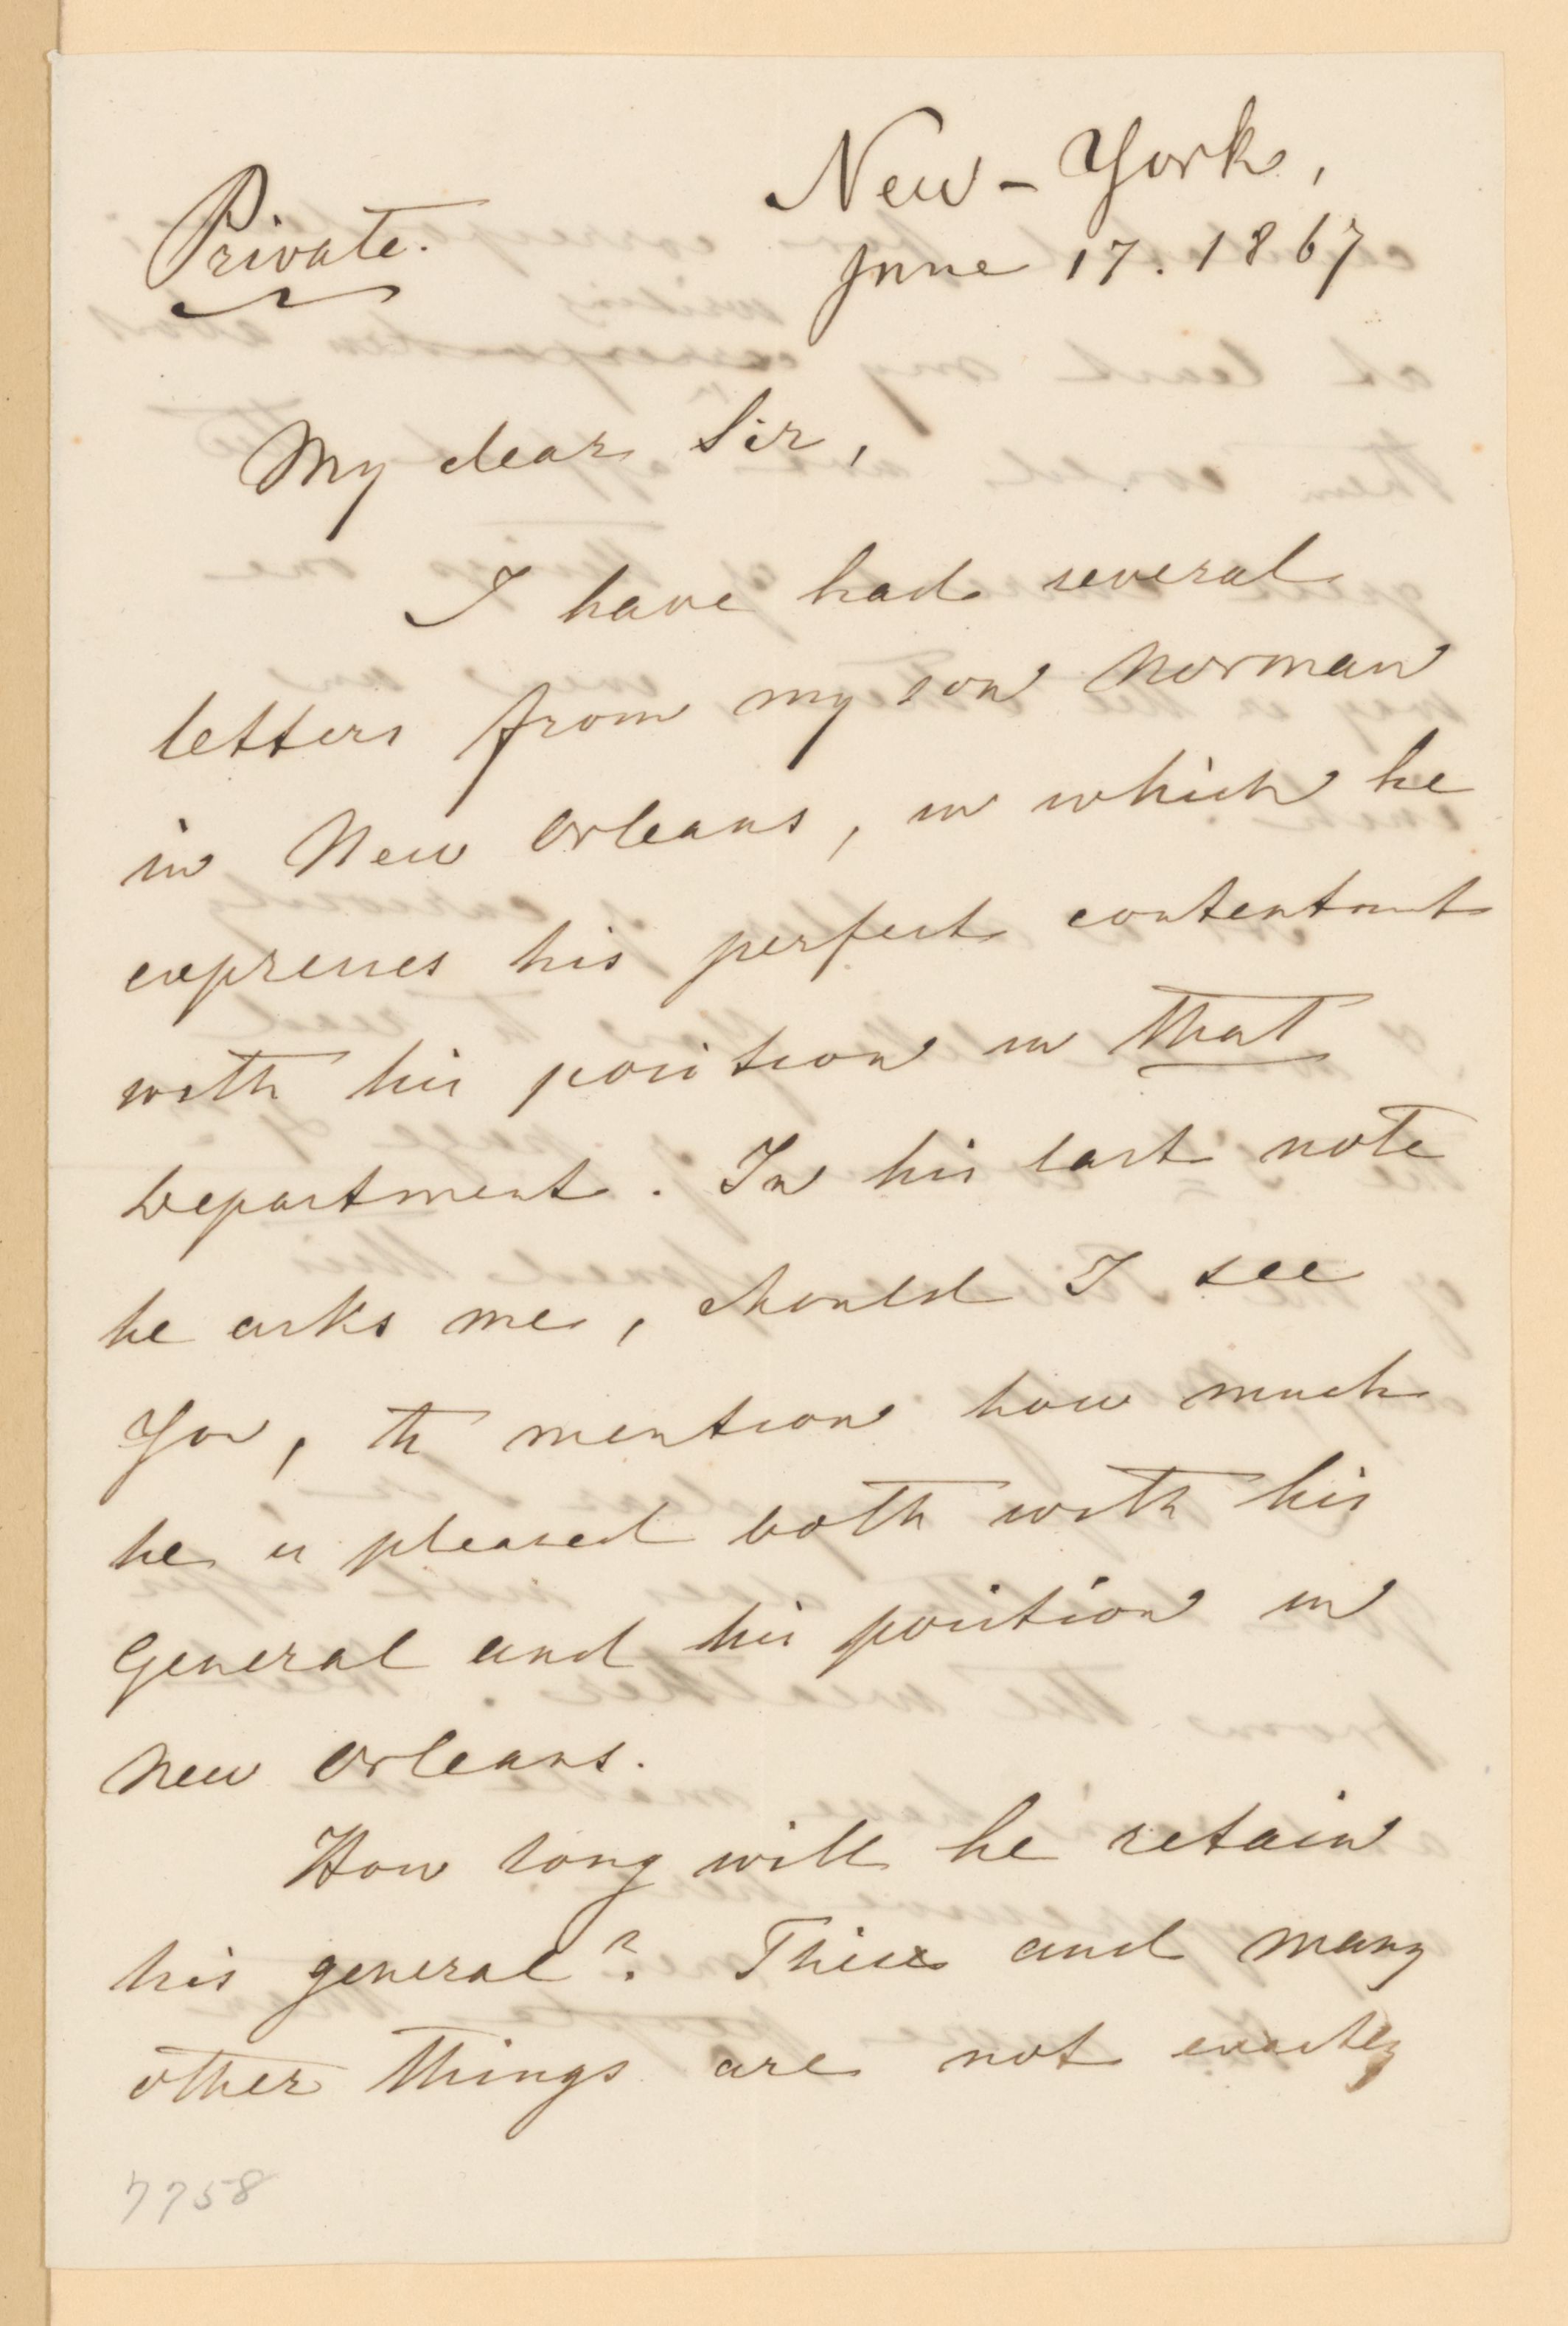 New-York,
Private.
June 17. 1867
My dear Sir,
I have had several
letters from my son Norman
in New Orleans, in which he
expresses his perfect contentmt
with his position in that
Department. In his last note
he asks me, should I see
You, to mention how much
he is pleased both with his
General and his position in
New Orleans.
How long will he retain
his general? These and many
other things are not exactly
7758